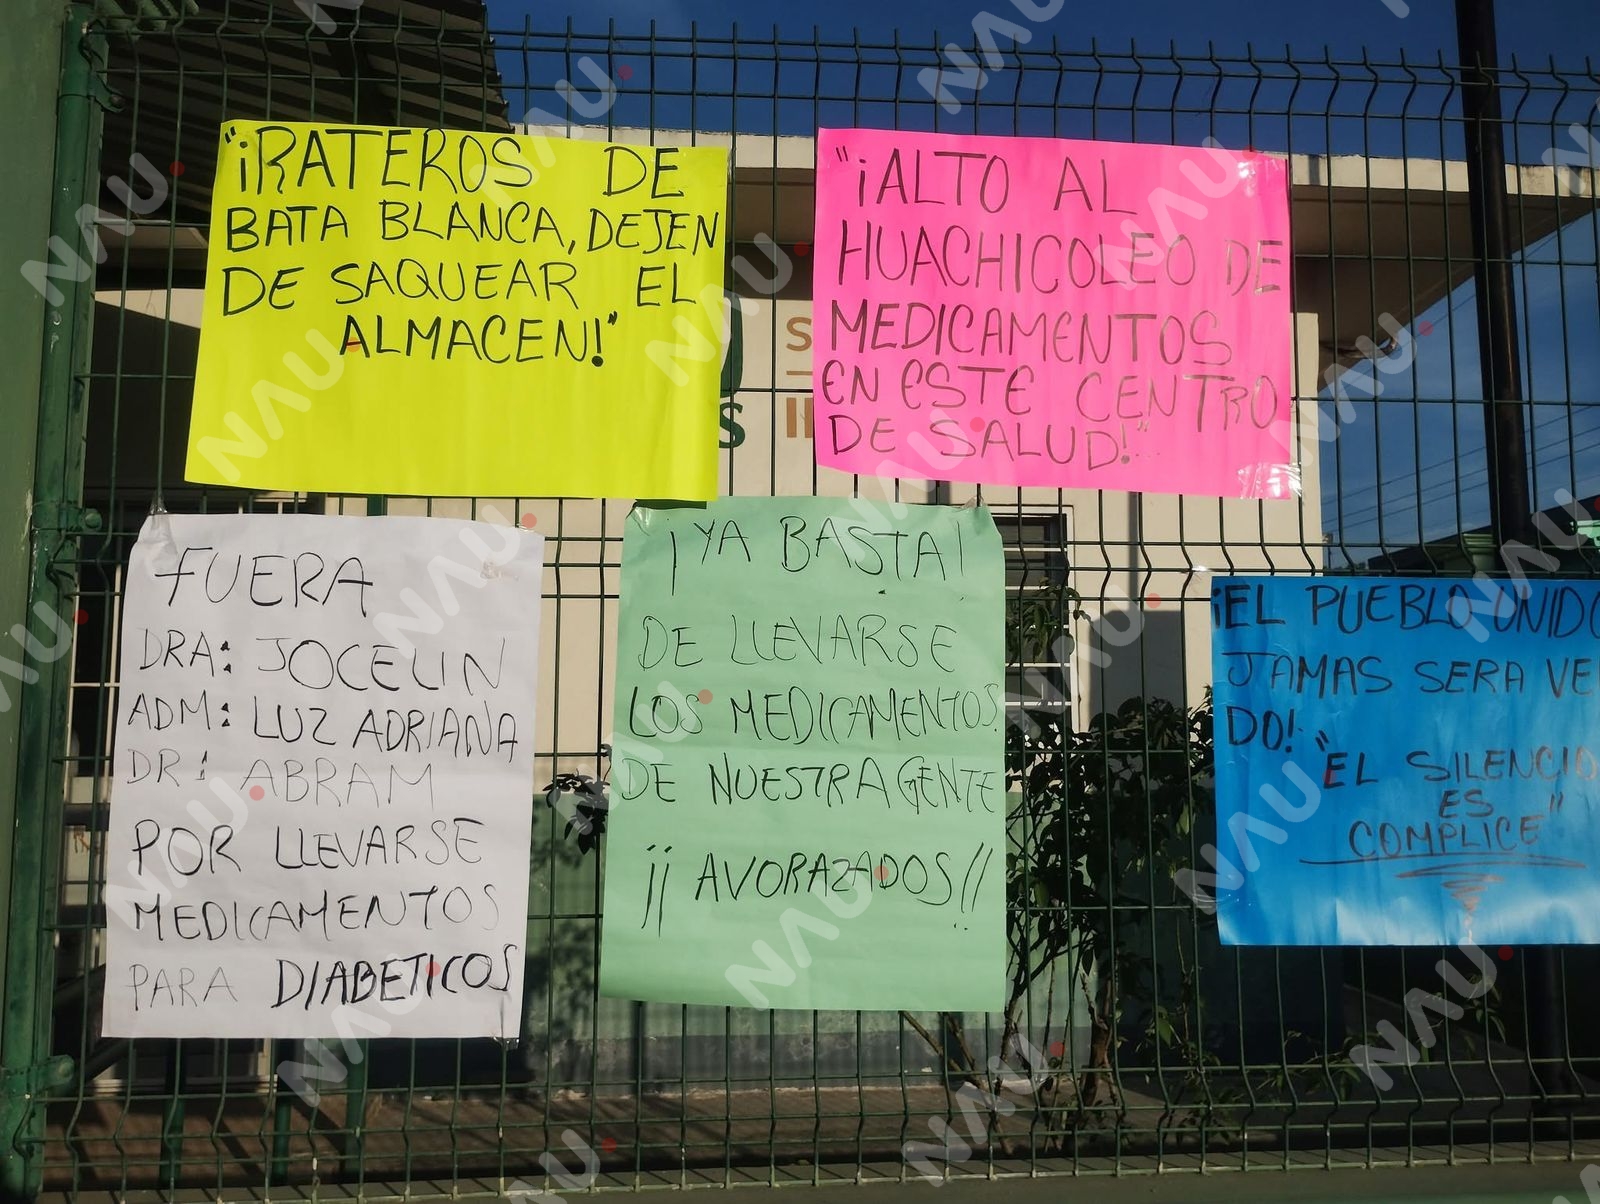 "¡RATEROS DE
BATA BLANCA, DEJEN
DE SAQUEAR EL
ALMACEN!"
"¡ALTO AL
HUACHICOLEO DE
MEDICAMENTOS
EN ESTE CENTRO
DE SALUD!"
FUERA
DRA: JOCELIN
ADM: LUZ ADRIANA
DR: ABRAM
POR LLEVARSE
MEDICAMENTOS
PARA DIABETICOS
¡YA BASTA!
DE LLEVARSE
LOS MEDICAMENTOS
DE NUESTRA GENTE
¡¡AVORAZADOS!!
¡EL PUEBLO UNIDO
JAMAS SERA VE
DO! "EL SILENCIO
ES
COMPLICE"
NAU.